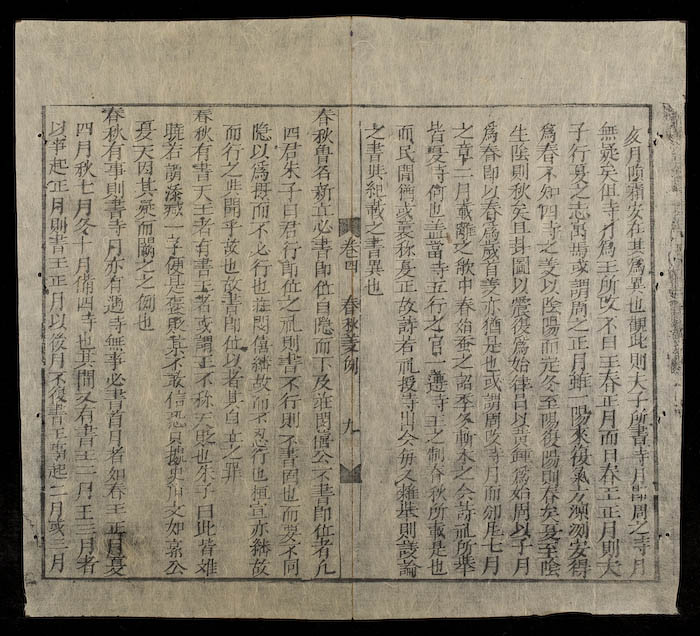 亥月隕霜安在其為異也觀此則夫子所書時月皆周之時月
無疑矣但時乃為王所改不曰王春正月而曰春王正月則夫
子行夏之志寓焉或謂周之正月雖一陽來復氣方凛冽安得
為春不知四時之義以陰陽而定冬至陽復陽則春矣夏至陰
生陰則秋矣且卦圖以震復為始律吕以黃鍾為始周以子月
為春即以春為歲首義亦猶是也或謂周改時月而豳風七月
之章二月載離之歌中春始蠶之詔季冬斬冰之令詩礼所舉
皆夏時何也盖當時五行之官一遵時王之制春秋所載是也
而民間猶或稱夏正故詩若礼授時出令每又雜舉則議論
之書與紀載之書異也
卷四 春秋義例 九
春秋魯君新立必書即位自隱而下及莊閔僖公不書即位者凡
四君朱子曰君行即位之礼則書不行則不書固也而要不同
隱以為攝而不必行也莊閔僖繼故而不忍行也桓宣亦繼故
而行之與聞乎故也故書即位以著其自立之罪
春秋有書天王者有書王者或謂王不称天貶也朱子曰此皆難
曉若謂添減一字便是褒貶某不敢信恐只據史舊文如郭公
夏五因其疑而闕之之例也
春秋有事則書時月亦有過時無事必書首月者如春王正月夏
四月秋七月冬十月備四時也其間又有書王二月王三月者
以事起正月則書王正月以後月不復書王事起二月或三月